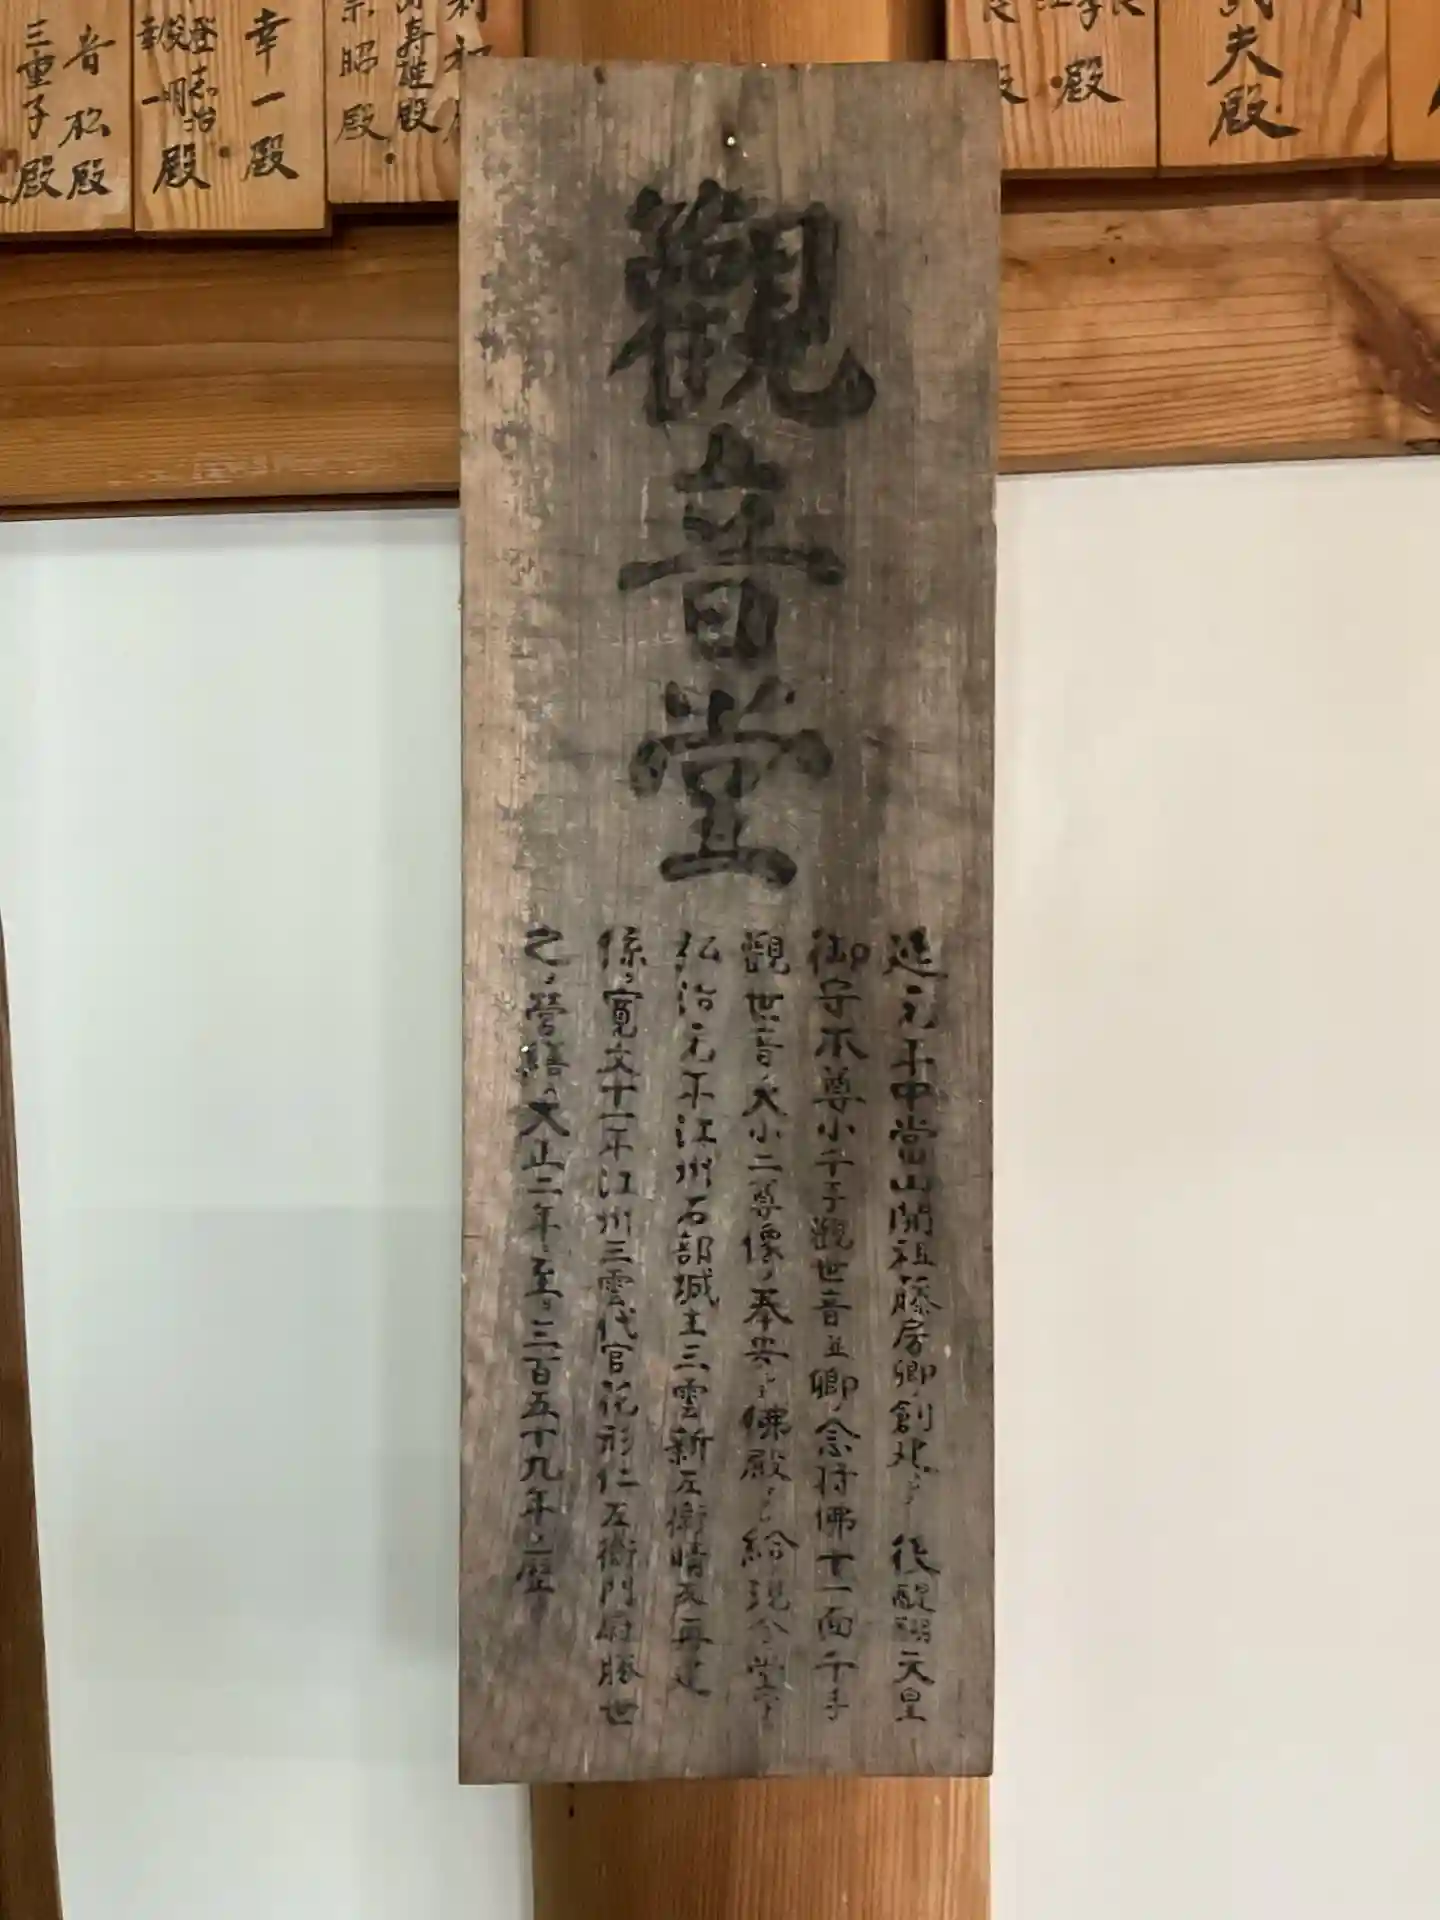 觀音堂
延元年中當山開祖藤房卿ノ創建ニシテ後醍醐天皇
御守本尊小千手觀世音並卿ノ念持佛十一面千手
觀世音ノ大小二尊像ヲ奉安シ佛殿ト給現今ノ堂宇
弘治元年江州石部城主三雲新左衛晴
係ル寛文十一年江州三雲代官花形仁左衛門
之ヲ營繕ス大正二年ニ至ル三百五十九年ヲ歴
三重子殿
音松殿
幸一殿
昭殿
夫殿